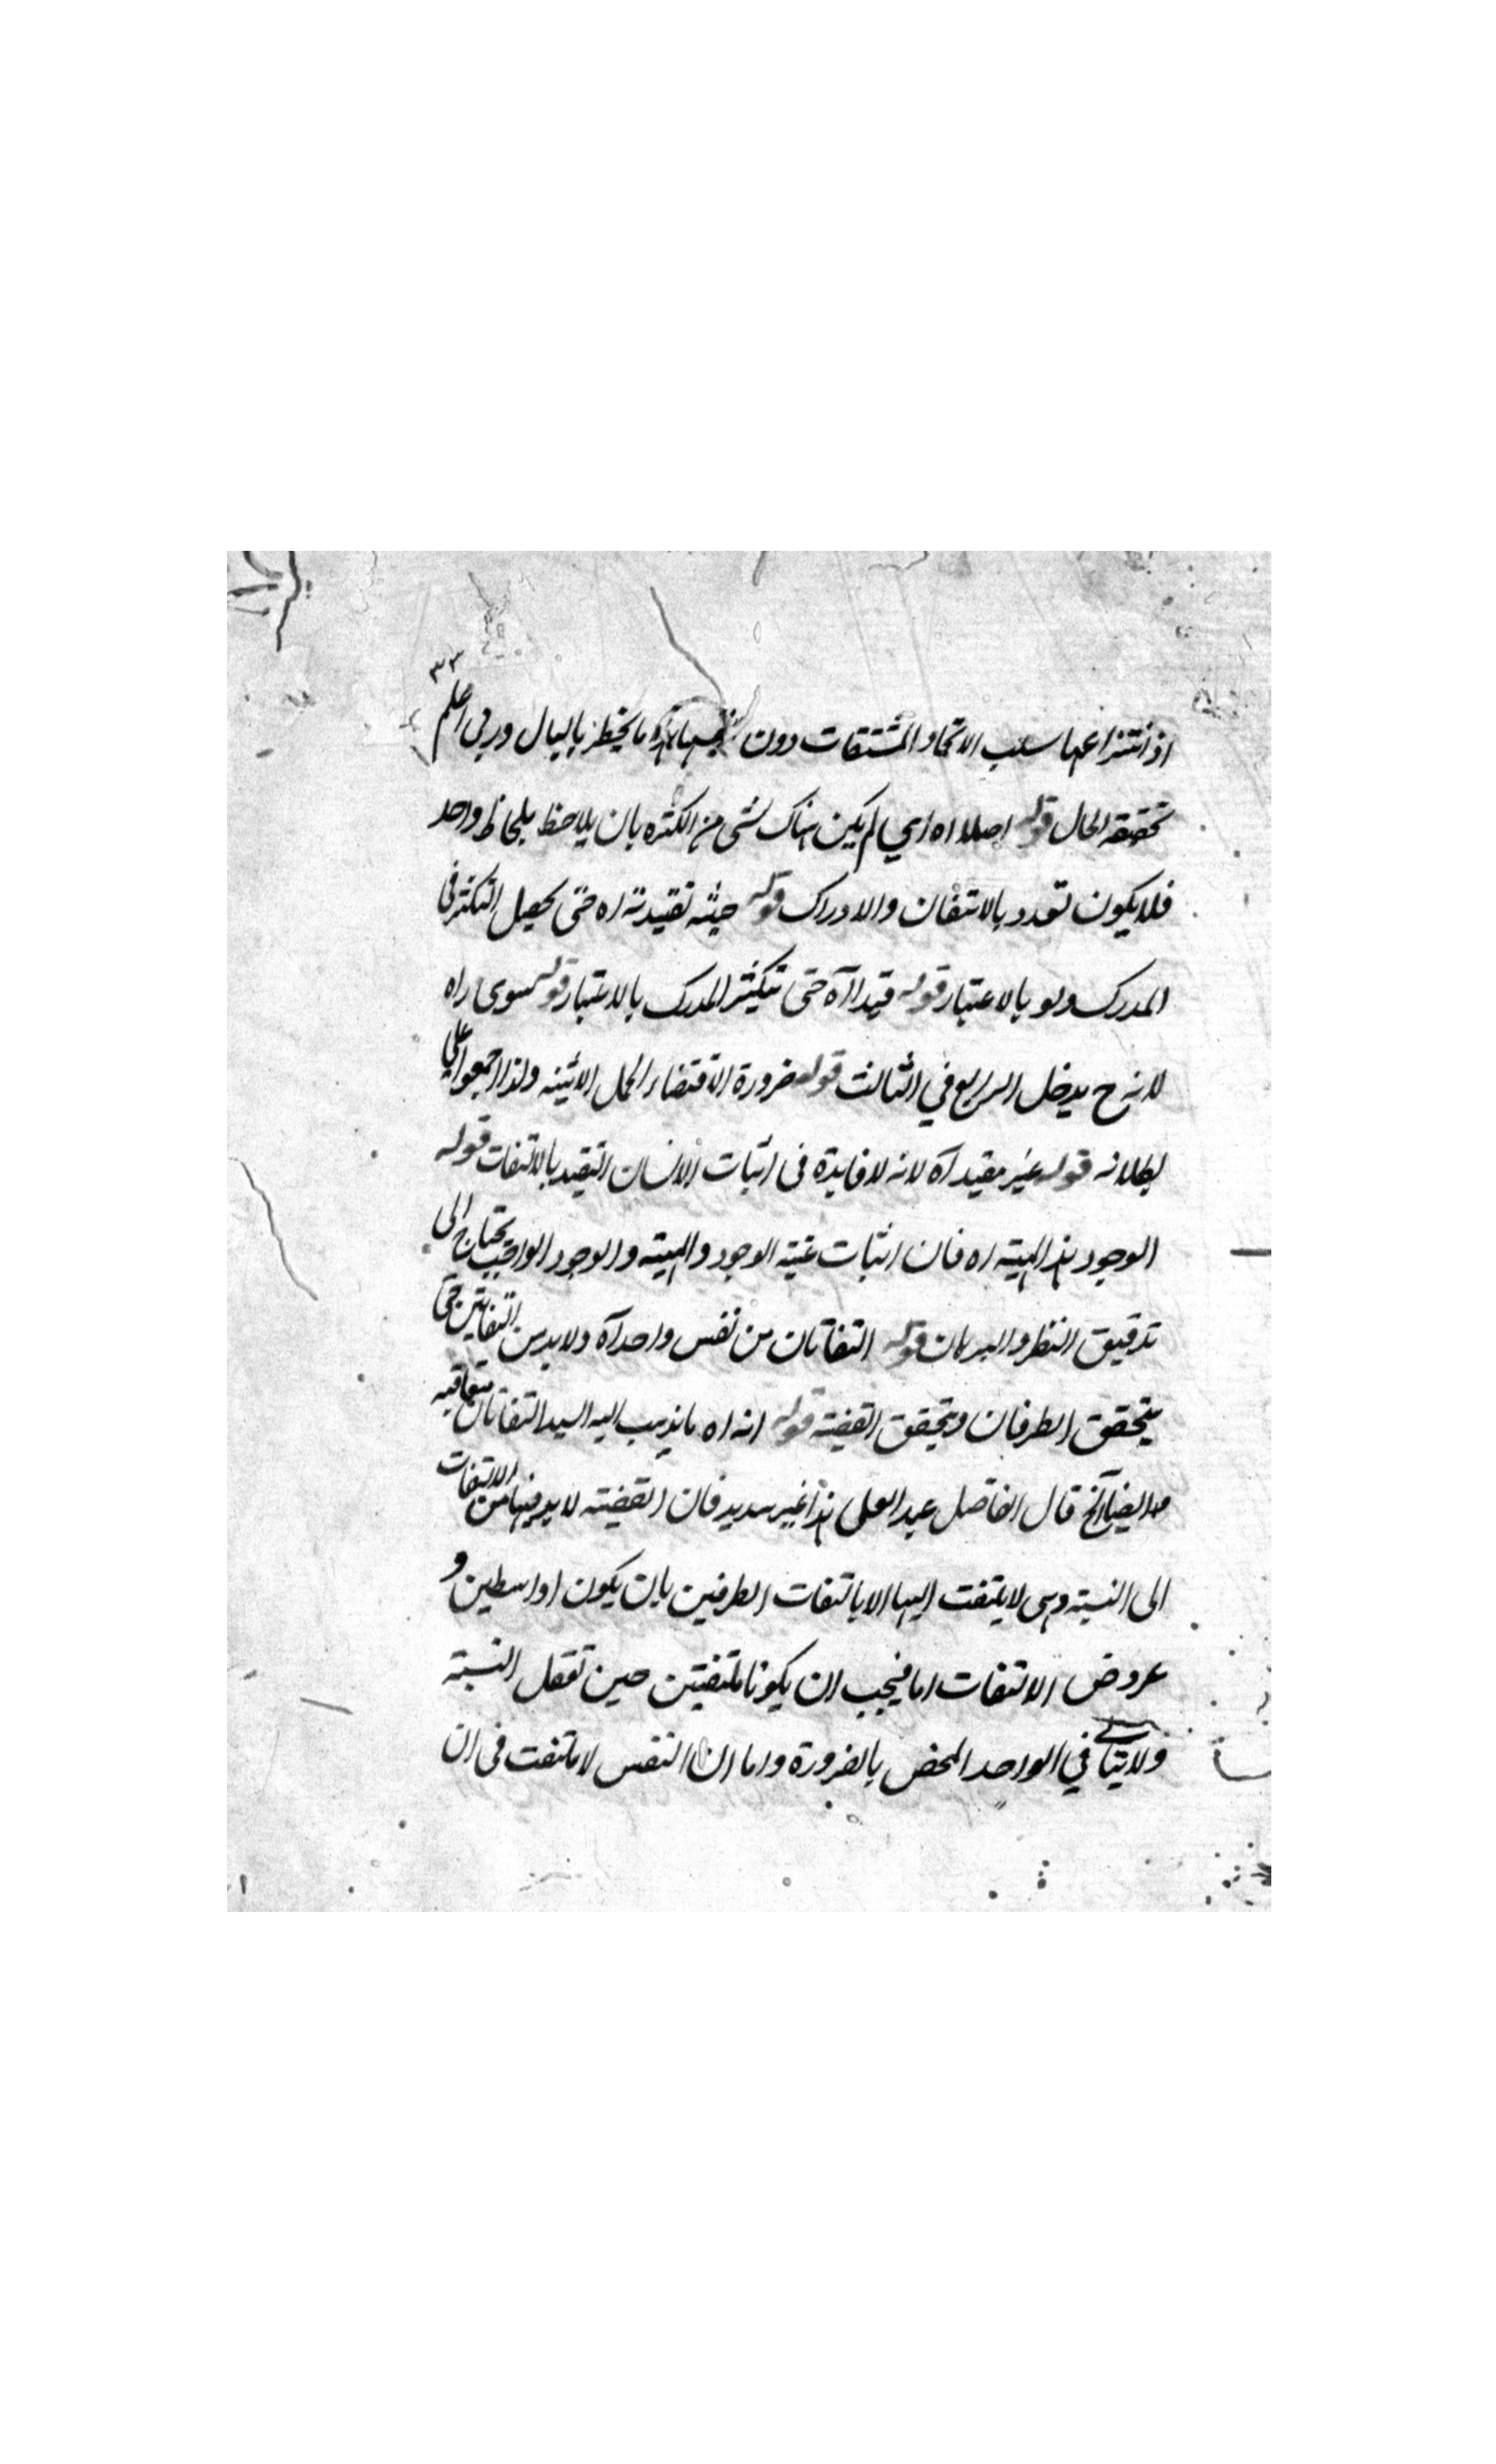 ٣٣
اذ انتزاعها سلب الاتحاد المشتقات دون ما يخطر بالبال وربي اعلم
بحقيقة الحال قوله اصلا اه اي لم يكن هناك شئ من الكثرة بان يلاحظ بلحاظ واحد
فلا يكون تعدد بالالتفات والادراك قوله حيثية تقيدية اه حتى يحصل التكثر في
المدرك ولو بالاعتبار قوله قيدا آه حتى تيكثر المدرك بالاعتبار قوله سوى اه
لانه ح يدخل الرابع في الثالث قوله ضرورة الاقتضاء الحمل الاثنينة ولذا اجمعوا على
بطلانه قوله غير مقيد آه لانه لا فايدة في اثبات الانسان التقيد بالالتفات قوله
الوجود هذ المهية اه فان اثبات عينة الوجود والمهية والوجود الواجب يحتاج الى
تدقيق النظر والبرهان قوله التفاتان من نفس واحد آه ولا بد من التفاتين حتى
يتحقق الطرفان ويتحقق القضية قوله انه اه ما يذهب اليه السيد التفاتان متعاقبه
ايضا آلخ قال الفاضل عبد العلى هذا غير سديد فان القضية لا بد فيها من الالتفات
الى النسبة وهى لا يلتفت اليها الا بالتفات الطرفين بان يكون اواسطين و
عروض الالتفات اما فيجب ان يكونا ملتفتين حين تعقل النسبة
ولا يتاتى في الواحد المحض بالضرورة واما ان النفس لا ملتفت في ان